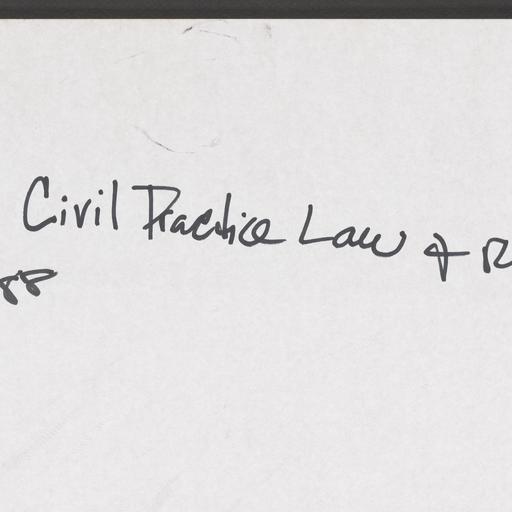 Civil Practice Law & R
88